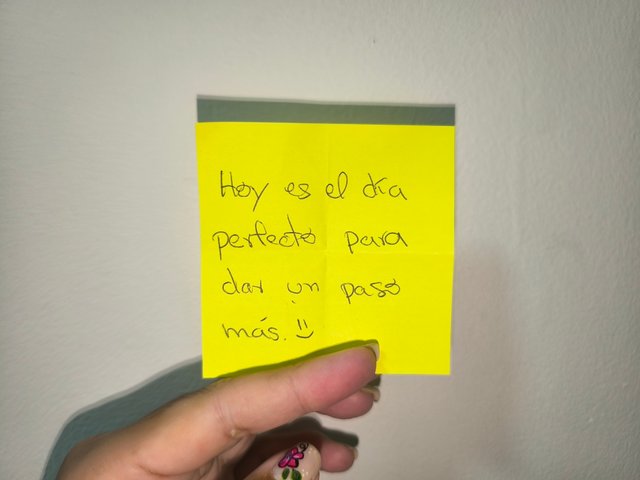 Hoy es el día
perfecto para
dar un paso
más. :)